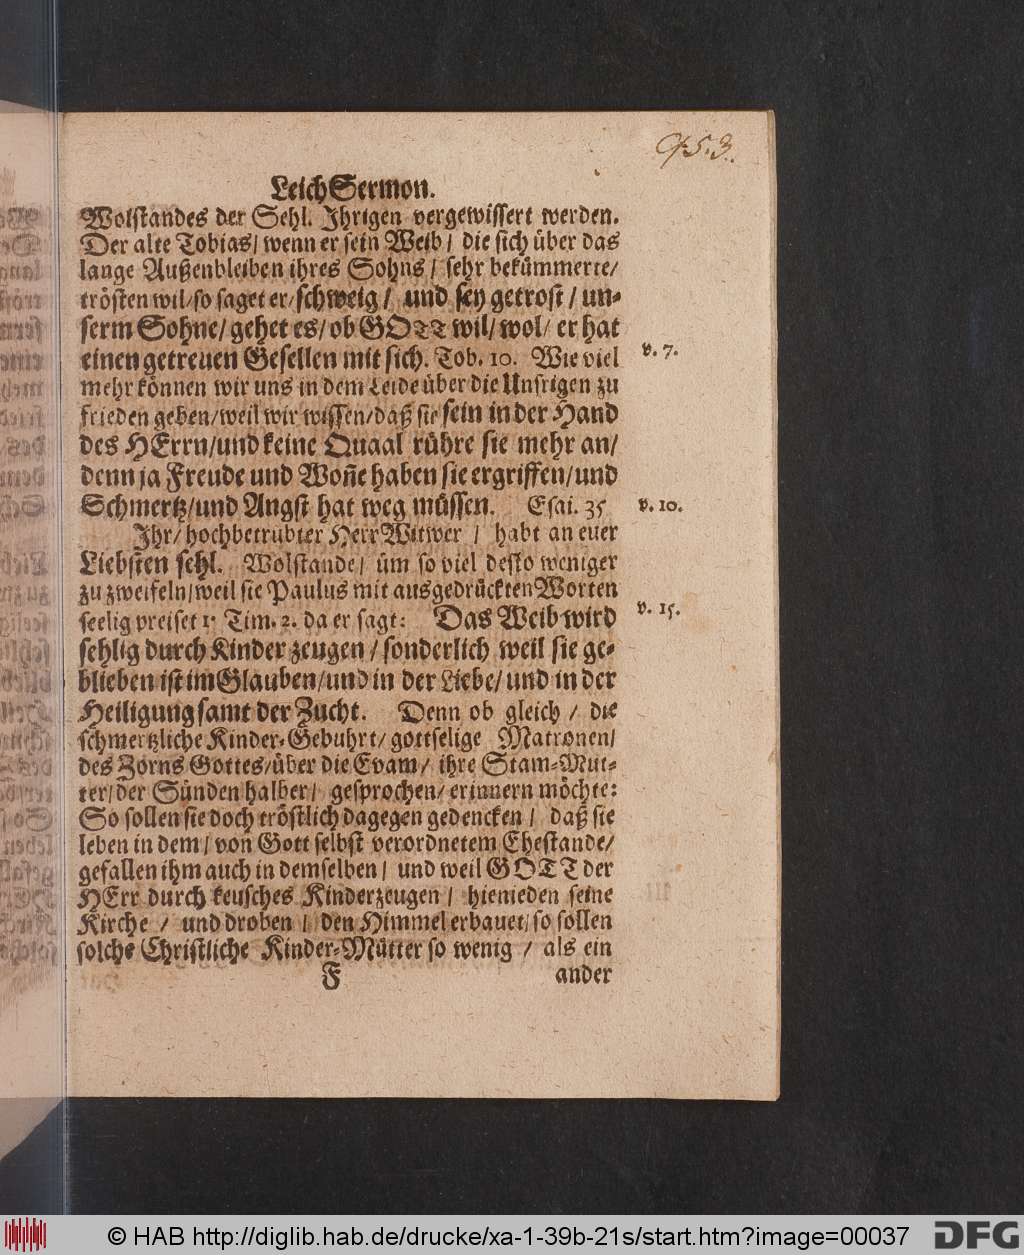 953.
Leich Sermon.
Wolstandes der Sehl. Ihrigen vergewissert werden.
Der alte Tobias/ wenn er sein Weib/ die sich über das
lange Außenbleiben ihres Sohns/ sehr bekümmerte/
trösten wil/ so saget er/ schweig/ und sey getrost/ un-
serm Sohne/ gehet es/ ob GOTT wil/ wol/ er hat
einen getreuen Gesellen mit sich. Tob. 10. Wie viel
v. 7.
mehr können wir uns in dem Leide über die Unsrigen zu
frieden geben/ weil wir wissen/ daß sie sein in der Hand
des HErrn/ und keine Quaal rühre sie mehr an/
denn ja Freude und Woñe haben sie ergriffen/ und
Schmertz/ und Angst hat weg müssen. Esai. 35
v. 10.
Ihr/ hochbetrübter Herr Witwer/ habt an euer
Liebsten sehl. Wolstande/ üm so viel desto weniger
zu zweifeln/ weil sie Paulus mit ausgedrückten Worten
seelig preiset 1. Tim. 2. da er sagt: Das Weib wird
v. 15.
sehlig durch Kinder zeugen/ sonderlich weil sie ge-
blieben ist im Glauben/ und in der Liebe/ und in der
Heiligung samt der Zucht. Denn ob gleich/ die
schmertzliche Kinder-Gebuhrt/ gottselige Matronen/
des Zorns Gottes/ über die Evam/ ihre Stam-Mut-
ter/ der Sünden halber/ gesprochen/ erinnern möchte:
So sollen sie doch tröstlich dagegen gedencken/ daß sie
leben in dem/ von Gott selbst verordnetem Ehestande/
gefallen ihm auch in demselben/ und weil GOTT der
HErr durch keusches Kinderzeugen/ hienieden seine
Kirche/ und droben/ den Himmel erbauet/ so sollen
solche Christliche Kinder-Mütter so wenig/ als ein
F
ander
© HAB http://diglib.hab.de/drucke/xa-1-39b-21s/start.htm?image=00037
DFG